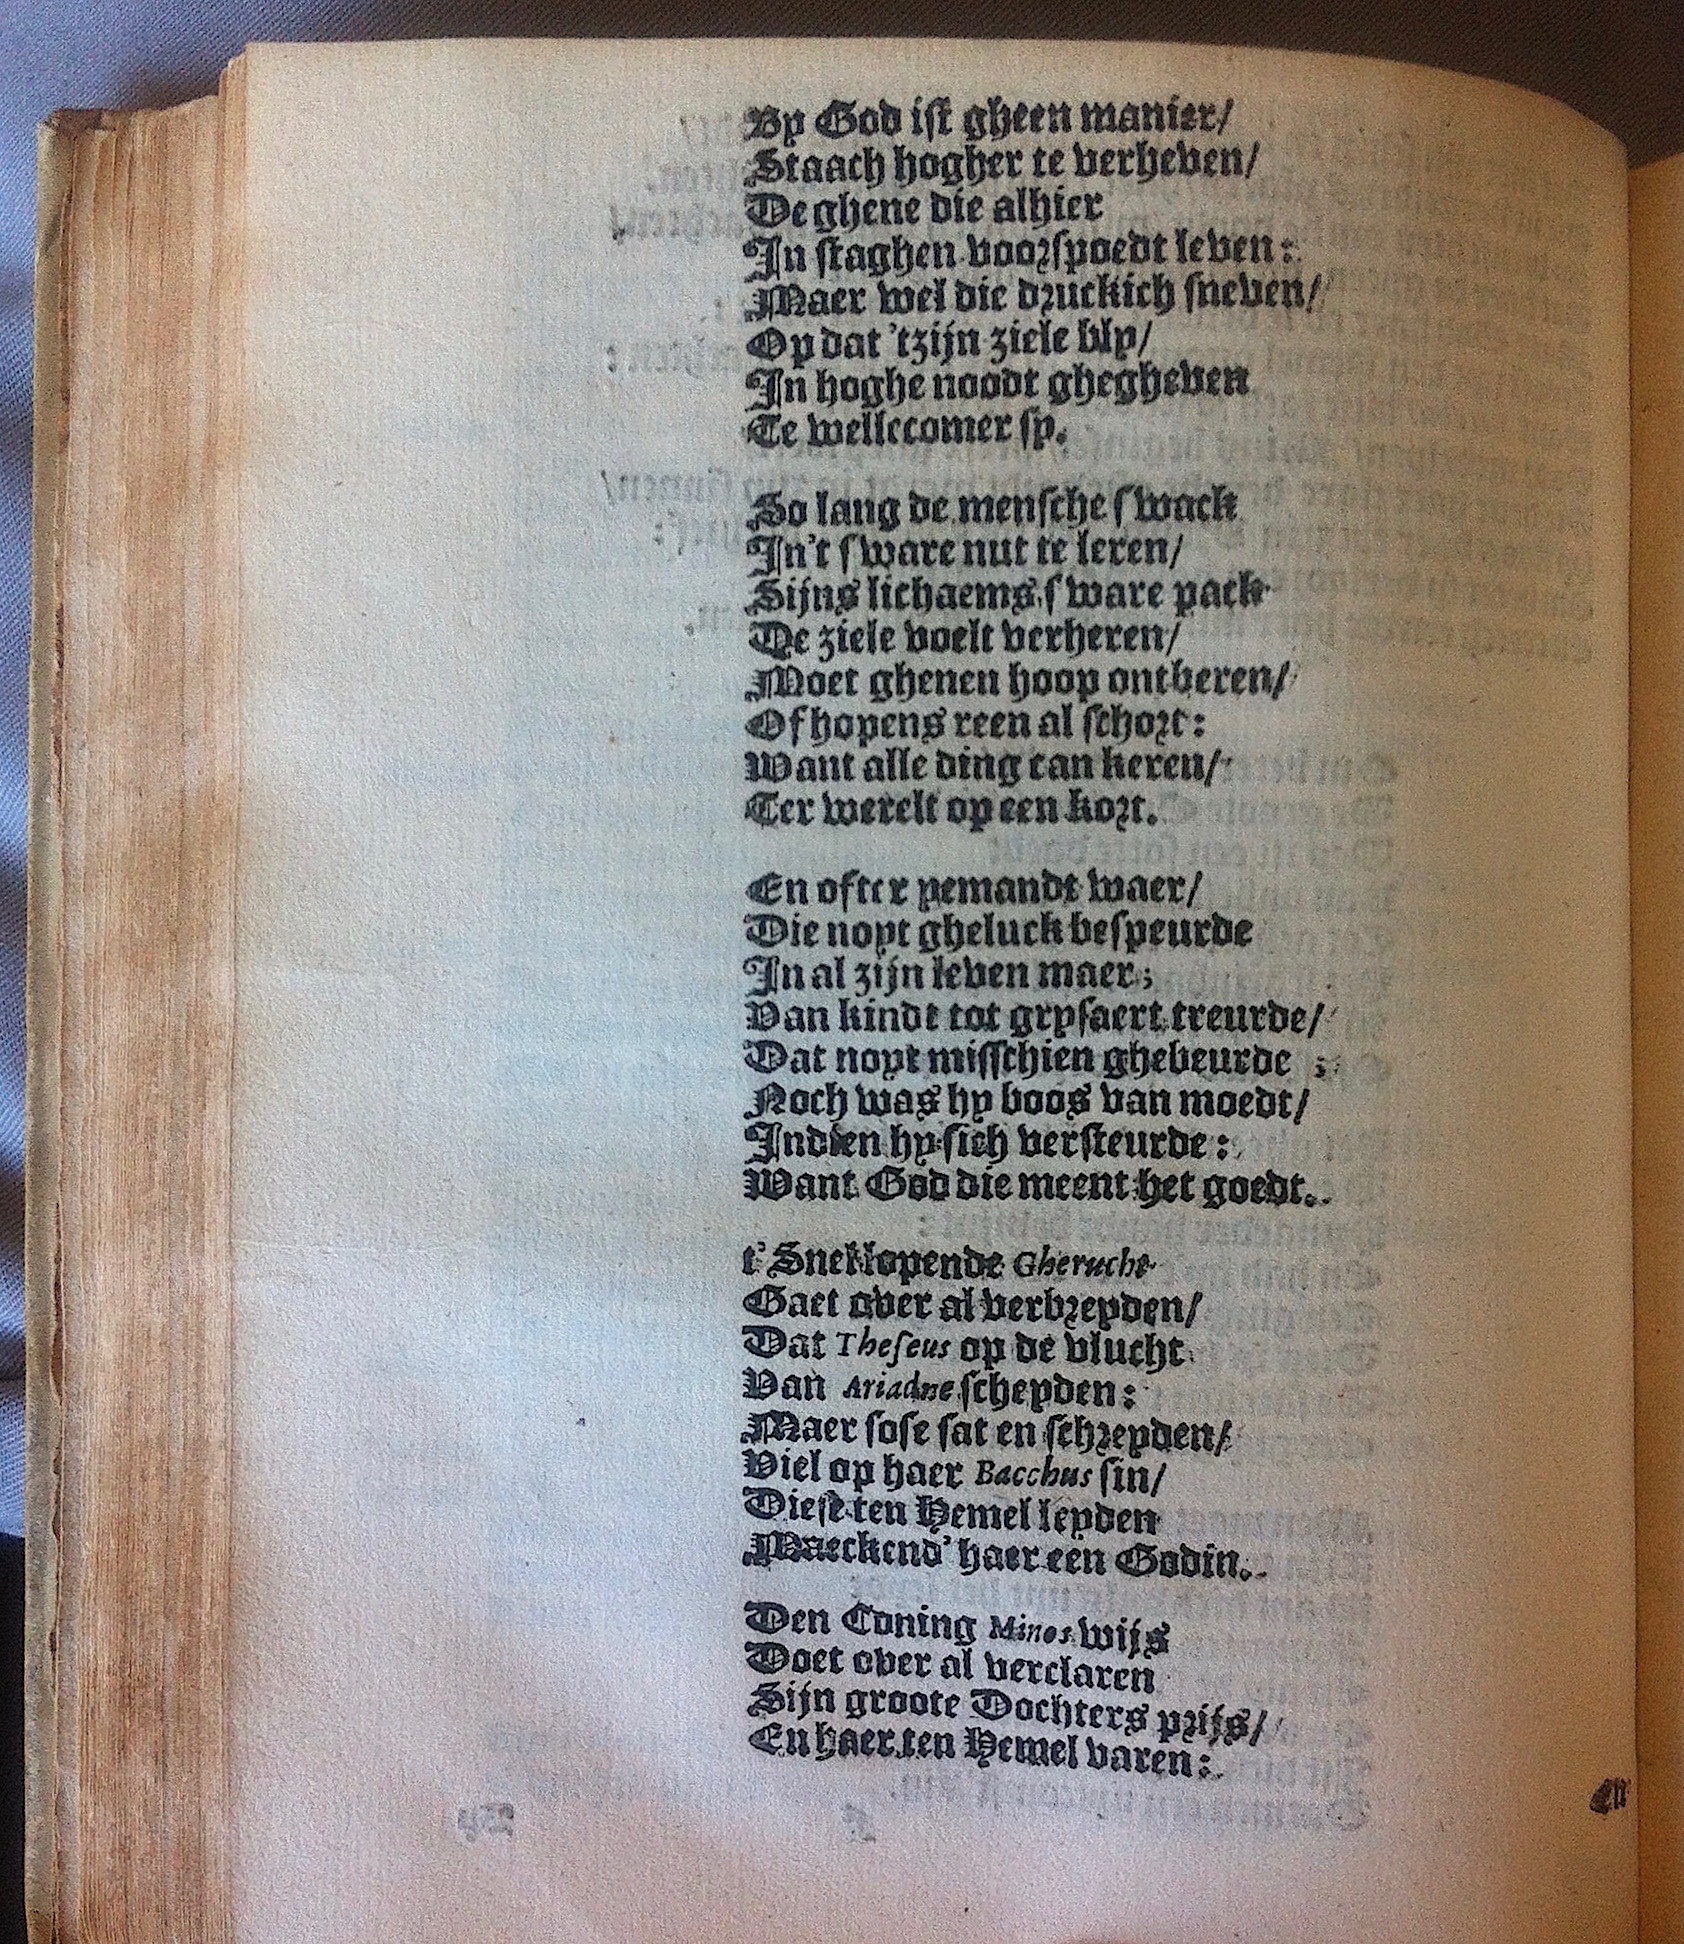 By God ist gheen manier/
Staach hogher te verheven/
De ghene die alhier
In staghen voorspoedt leven:
Maer wel die druckich sneven/
Op dat 'tzijn ziele bly/
In hoghe noodt ghegheven
Te wellecomer sy.
So lang de mensche swack
In't sware nut te leren/
Sijns lichaems sware pack
De ziele voelt verheren/
Moet ghenen hoop ontberen/
Of hopens reen al schort:
Want alle ding can keren/
Ter werelt op een kort.
En ofter yemandt waer/
Die noyt gheluck bespeurde
In al zijn leven maer;
Van kindt tot grysaert treurde/
Dat noyt misschien ghebeurde ;
Noch was hy boos van moedt/
Indien hy sich versteurde:
Want God die meent het goedt.
t'Sneklopende Gherucht
Gaet over al verbreyden/
Dat Theseus op de vlucht
Van Ariadne scheyden:
Maer sose sat en schreyden/
Viel op haer Bacchus sin/
Diese ten Hemel leyden
Maeckend' haer een Godin.
Den Coning Minos wijs
Doet over al verclaren
Sijn groote Dochters prijs/
En haer ten Hemel varen:
En